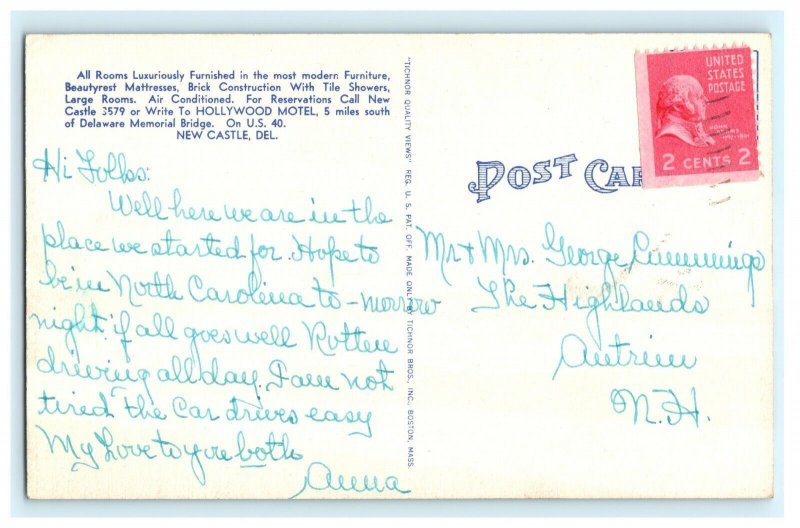 All Rooms Luxuriously Furnished in the most modern Furniture,
Beautyrest Mattresses, Brick Construction With Tile Showers,
Large Rooms. Air Conditioned. For Reservations Call New
Castle 3579 or Write To HOLLYWOOD MOTEL, 5 miles south
of Delaware Memorial Bridge. On U.S. 40.
NEW CASTLE, DEL.
Hi Folks:
Well here we are in the
place we started for. Hope to
be in North Carolina to-morrow
night if all goes well Rotten
driving all day. I am not
tired the car drives easy
My Love to you both
Anna
"TICHNOR QUALITY VIEWS" REG. U. S. PAT. OFF. MADE ONLY BY TICHNOR BROS., INC., BOSTON, MASS.
POST CAR
UNITED
STATES
POSTAGE
JOHN
ADAMS
2 CENTS 2
Mr & Mrs. George Cummings
The Highlands
Antrim
N.H.